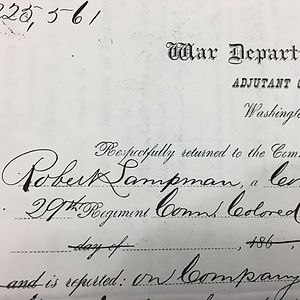 225,561
War Depart
ADJUTANT
Washington
Respectfully returned to the Com
Robert Lampman, a Co
29th Regiment Conn Colored
day of , 186
and is reported: on Company